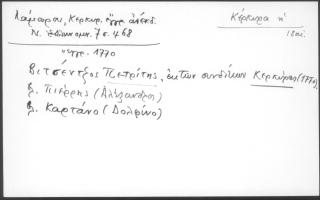 Λάμπρου, Κερκυρ. ἔγγρ. ἀνέκδ.
Ν. Ἑλληνομν. 7 σ. 468
Κέρκυρα
ἔγγρ. 1770
Βιτσέντζος Πετρίτης, ἐκ τῶν συνδίκων Κερκύρας (1770).
β. Πιέρρης (Ἀλέξανδρος)
β. Καρτάνο (Δολφίνο)